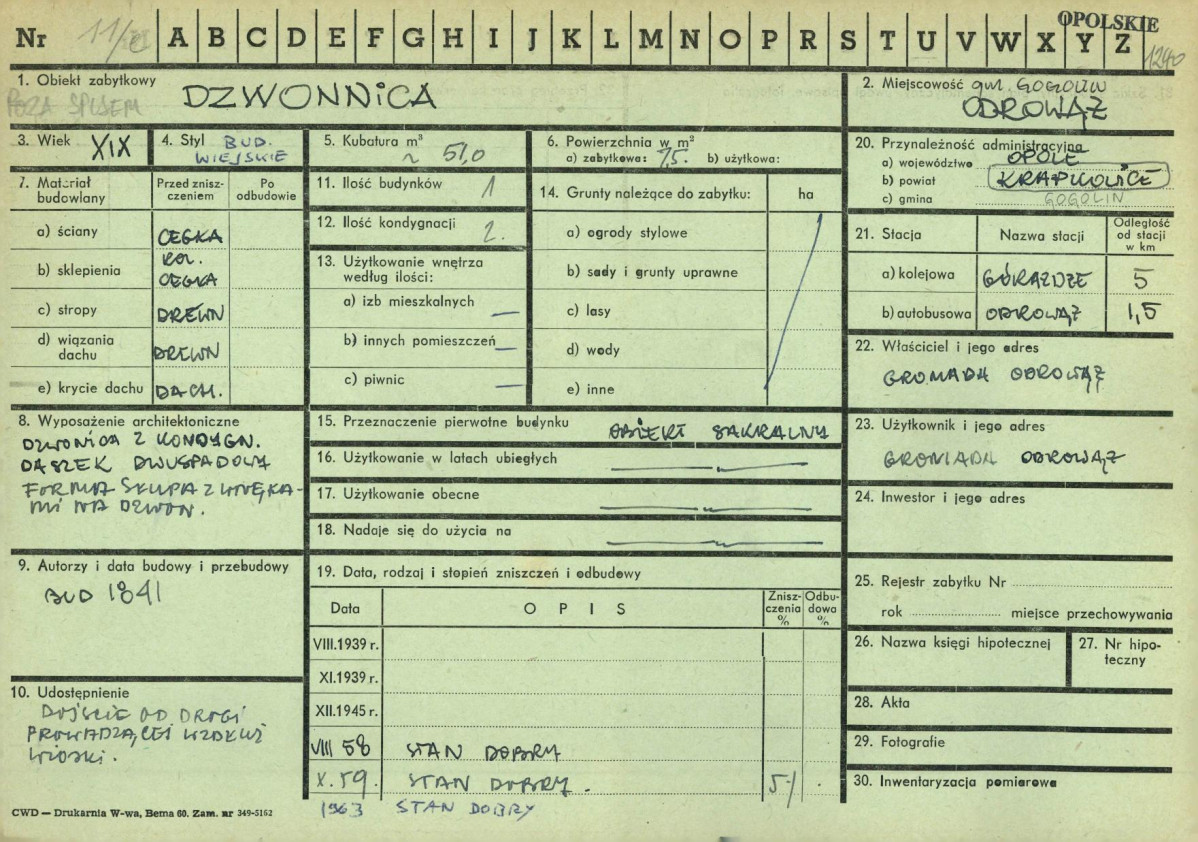 OPOLSKIE
Nr 11/ A B C D E F G H I J K L M N O P R S T U V W X Y Z
1240
1. Obiekt zabytkowy
POZA SPISEM
DZWONNICA
2. Miejscowość gm. GOGOLIN
ODROWĄŻ
3. Wiek XIX
4. Styl BUD.
WIEJSKIE
5. Kubatura m³
~ 51,0
6. Powierzchnia w m²
a) zabytkowa: 7,5. b) użytkowa:
20. Przynależność administracyjna
a) województwo OPOLE
b) powiat KRAPKOWICE
c) gmina GOGOLIN
7. Materiał budowlany
Przed zniszczeniem
Po odbudowie
a) ściany CEGŁA
b) sklepienia KOL. CEGŁA
c) stropy DREWN
d) wiązania dachu DREWN
e) krycie dachu DACH.
11. Ilość budynków 1
12. Ilość kondygnacji 2.
13. Użytkowanie wnętrza
według ilości:
a) izb mieszkalnych —
b) innych pomieszczeń —
c) piwnic —
14. Grunty należące do zabytku: ha
a) ogrody stylowe
b) sady i grunty uprawne
c) lasy
d) wody
e) inne
21. Stacja
Nazwa stacji
Odległość od stacji w km
a) kolejowa GÓRAŻDŻE 5
b) autobusowa ODROWĄŻ 1,5
22. Właściciel i jego adres
GROMADA ODROWĄŻ
8. Wyposażenie architektoniczne
DZWONICA 2 KONDYGN.
DASZEK DWUSPADOWY
FORMA SŁUPA Z WNĘKA-
MI NA DZWON.
15. Przeznaczenie pierwotne budynku OBIEKT SAKRALNY
16. Użytkowanie w latach ubiegłych
17. Użytkowanie obecne
18. Nadaje się do użycia na
23. Użytkownik i jego adres
GROMADA ODROWĄŻ
24. Inwestor i jego adres
9. Autorzy i data budowy i przebudowy
BUD 1841
19. Data, rodzaj i stopień zniszczeń i odbudowy
Data
OPIS
Zniszczenia %
Odbudowa %
VIII.1939 r.
XI.1939 r.
XII.1945 r.
VIII 58 STAN DOBRY
X. 59. STAN DOBRY. 5%
1963 STAN DOBRY
25. Rejestr zabytku Nr
rok miejsce przechowywania
26. Nazwa księgi hipotecznej
27. Nr hipoteczny
10. Udostępnienie
DOJŚCIE OD DROGI
PROWADZĄCEJ WZDŁUŻ
WIOSKI.
28. Akta
29. Fotografie
30. Inwentaryzacja pomiarowa
CWD — Drukarnia W-wa, Bema 60. Zam. nr 349-5162